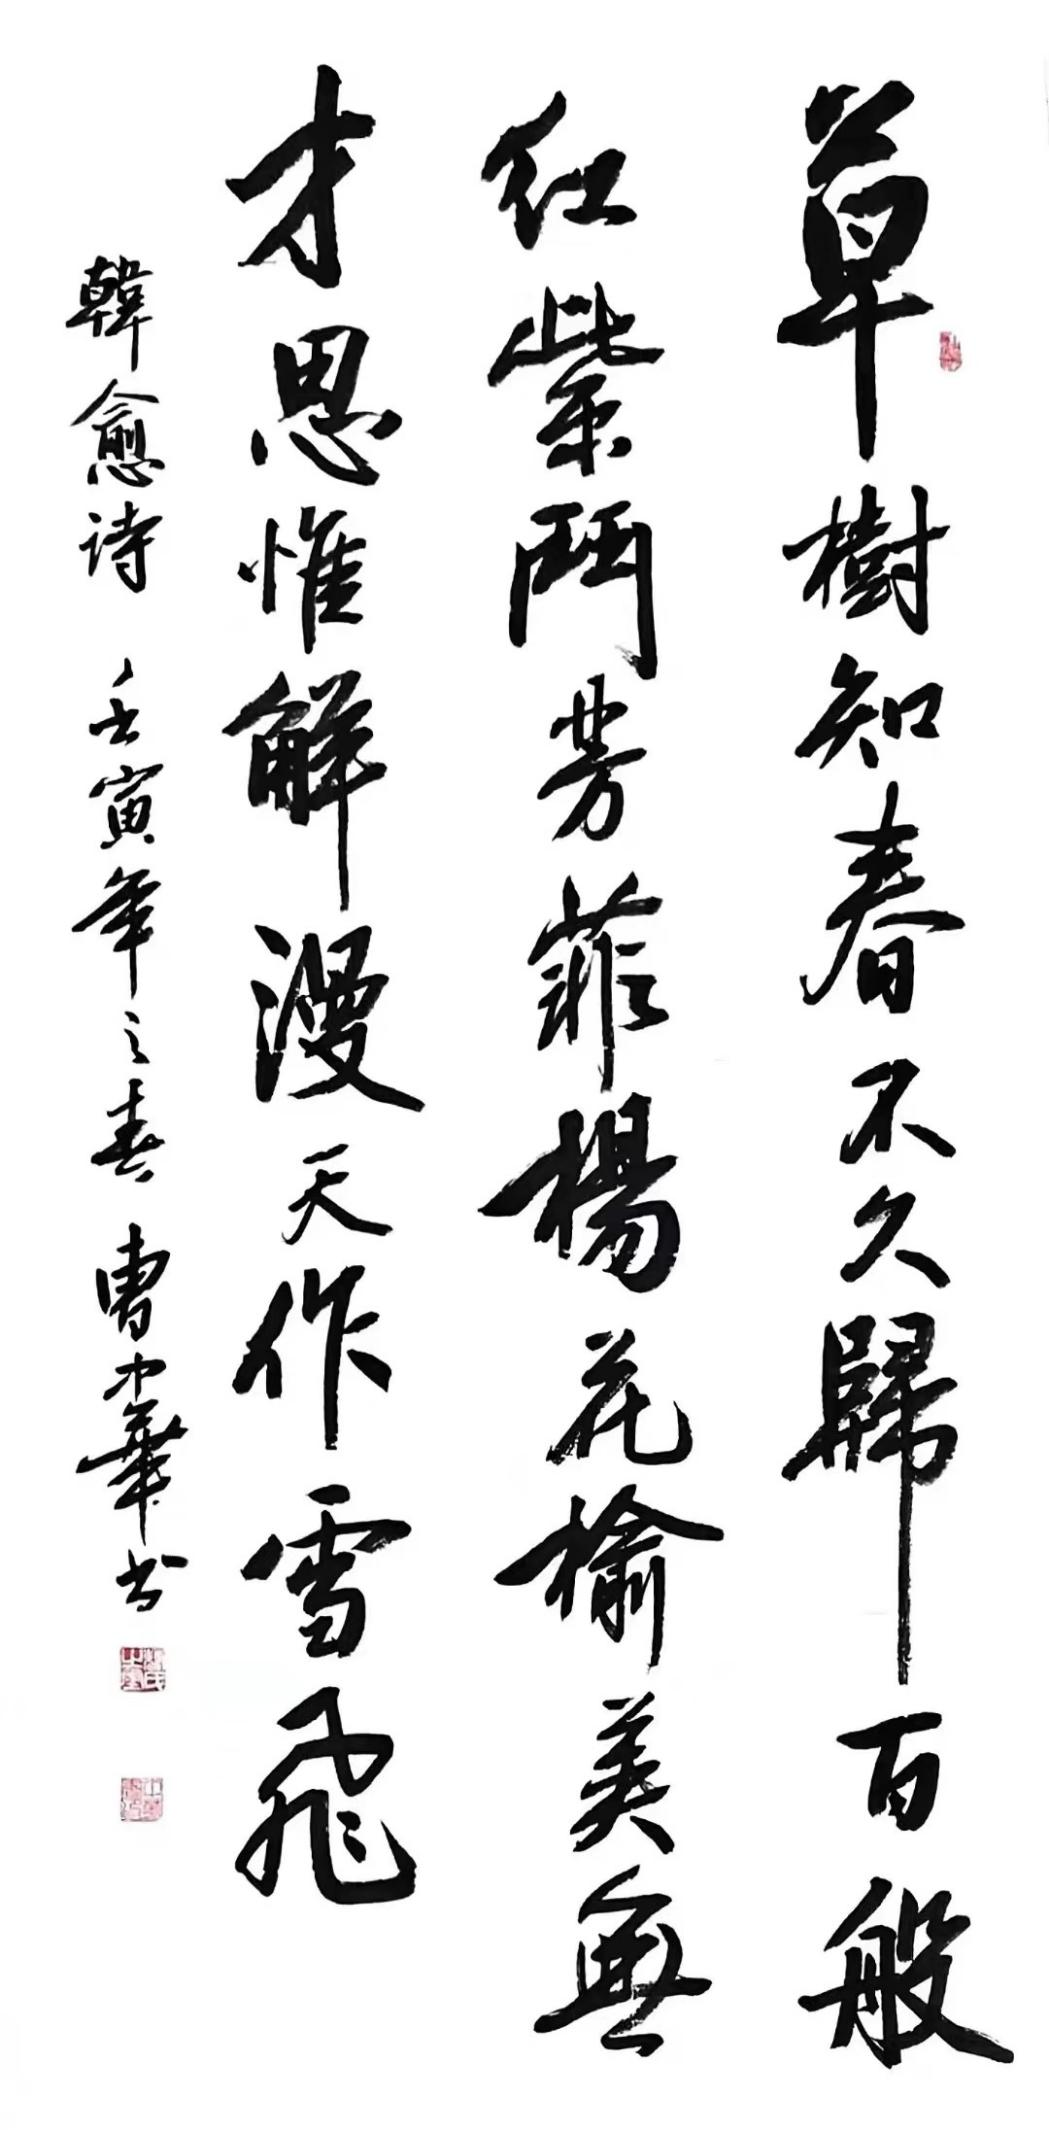 草樹知春不久歸百般
红紫鬥芳菲楊花榆美無
才思惟解漫天作雪飛
韓愈诗 壬寅年之春 曹中華书